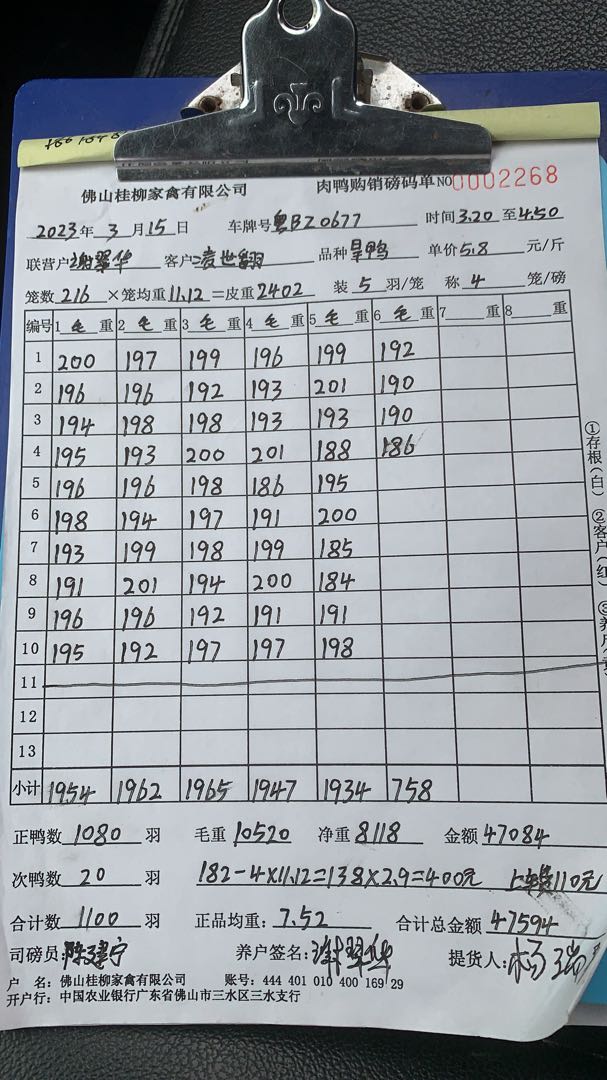 佛山桂柳家禽有限公司 肉鸭购销磅码单 NO 0002268
2023年 3月 15日 车牌号 粤BZ0677 时间 3.20 至 4.50
联营户 谢翠华 客户: 凌世翻 品种 旱鸭 单价 5.8 元/斤
笼数 216 ×笼均重 11.12 =皮重 2402 装 5 羽/笼 称 4 笼/磅
编号 1 毛 重 2 毛 重 3 毛 重 4 毛 重 5 毛 重 6 毛 重 7 重 8 重
1 200 197 199 196 199 192
2 196 196 192 193 201 190
3 194 198 198 193 193 190
4 195 193 200 201 188 186
5 196 196 198 186 195
6 198 194 197 191 200
7 193 199 198 199 185
8 191 201 194 200 184
9 196 196 192 191 191
10 195 192 197 197 198
11
12
13
小计 1954 1962 1965 1947 1934 758
①存根(白) ②客户(红)
正鸭数 1080 羽 毛重 10520 净重 8118 金额 47084
次鸭数 20 羽 182-4×11.12=138×2.9=400元 110元
合计数 1100 羽 正品均重: 7.52 合计总金额 47594
司磅员: 陈建宁 养户签名: 谢翠华 提货人: 杨
户 名: 佛山桂柳家禽有限公司 账号: 444 401 010 400 169 29
开户行: 中国农业银行广东省佛山市三水区三水支行